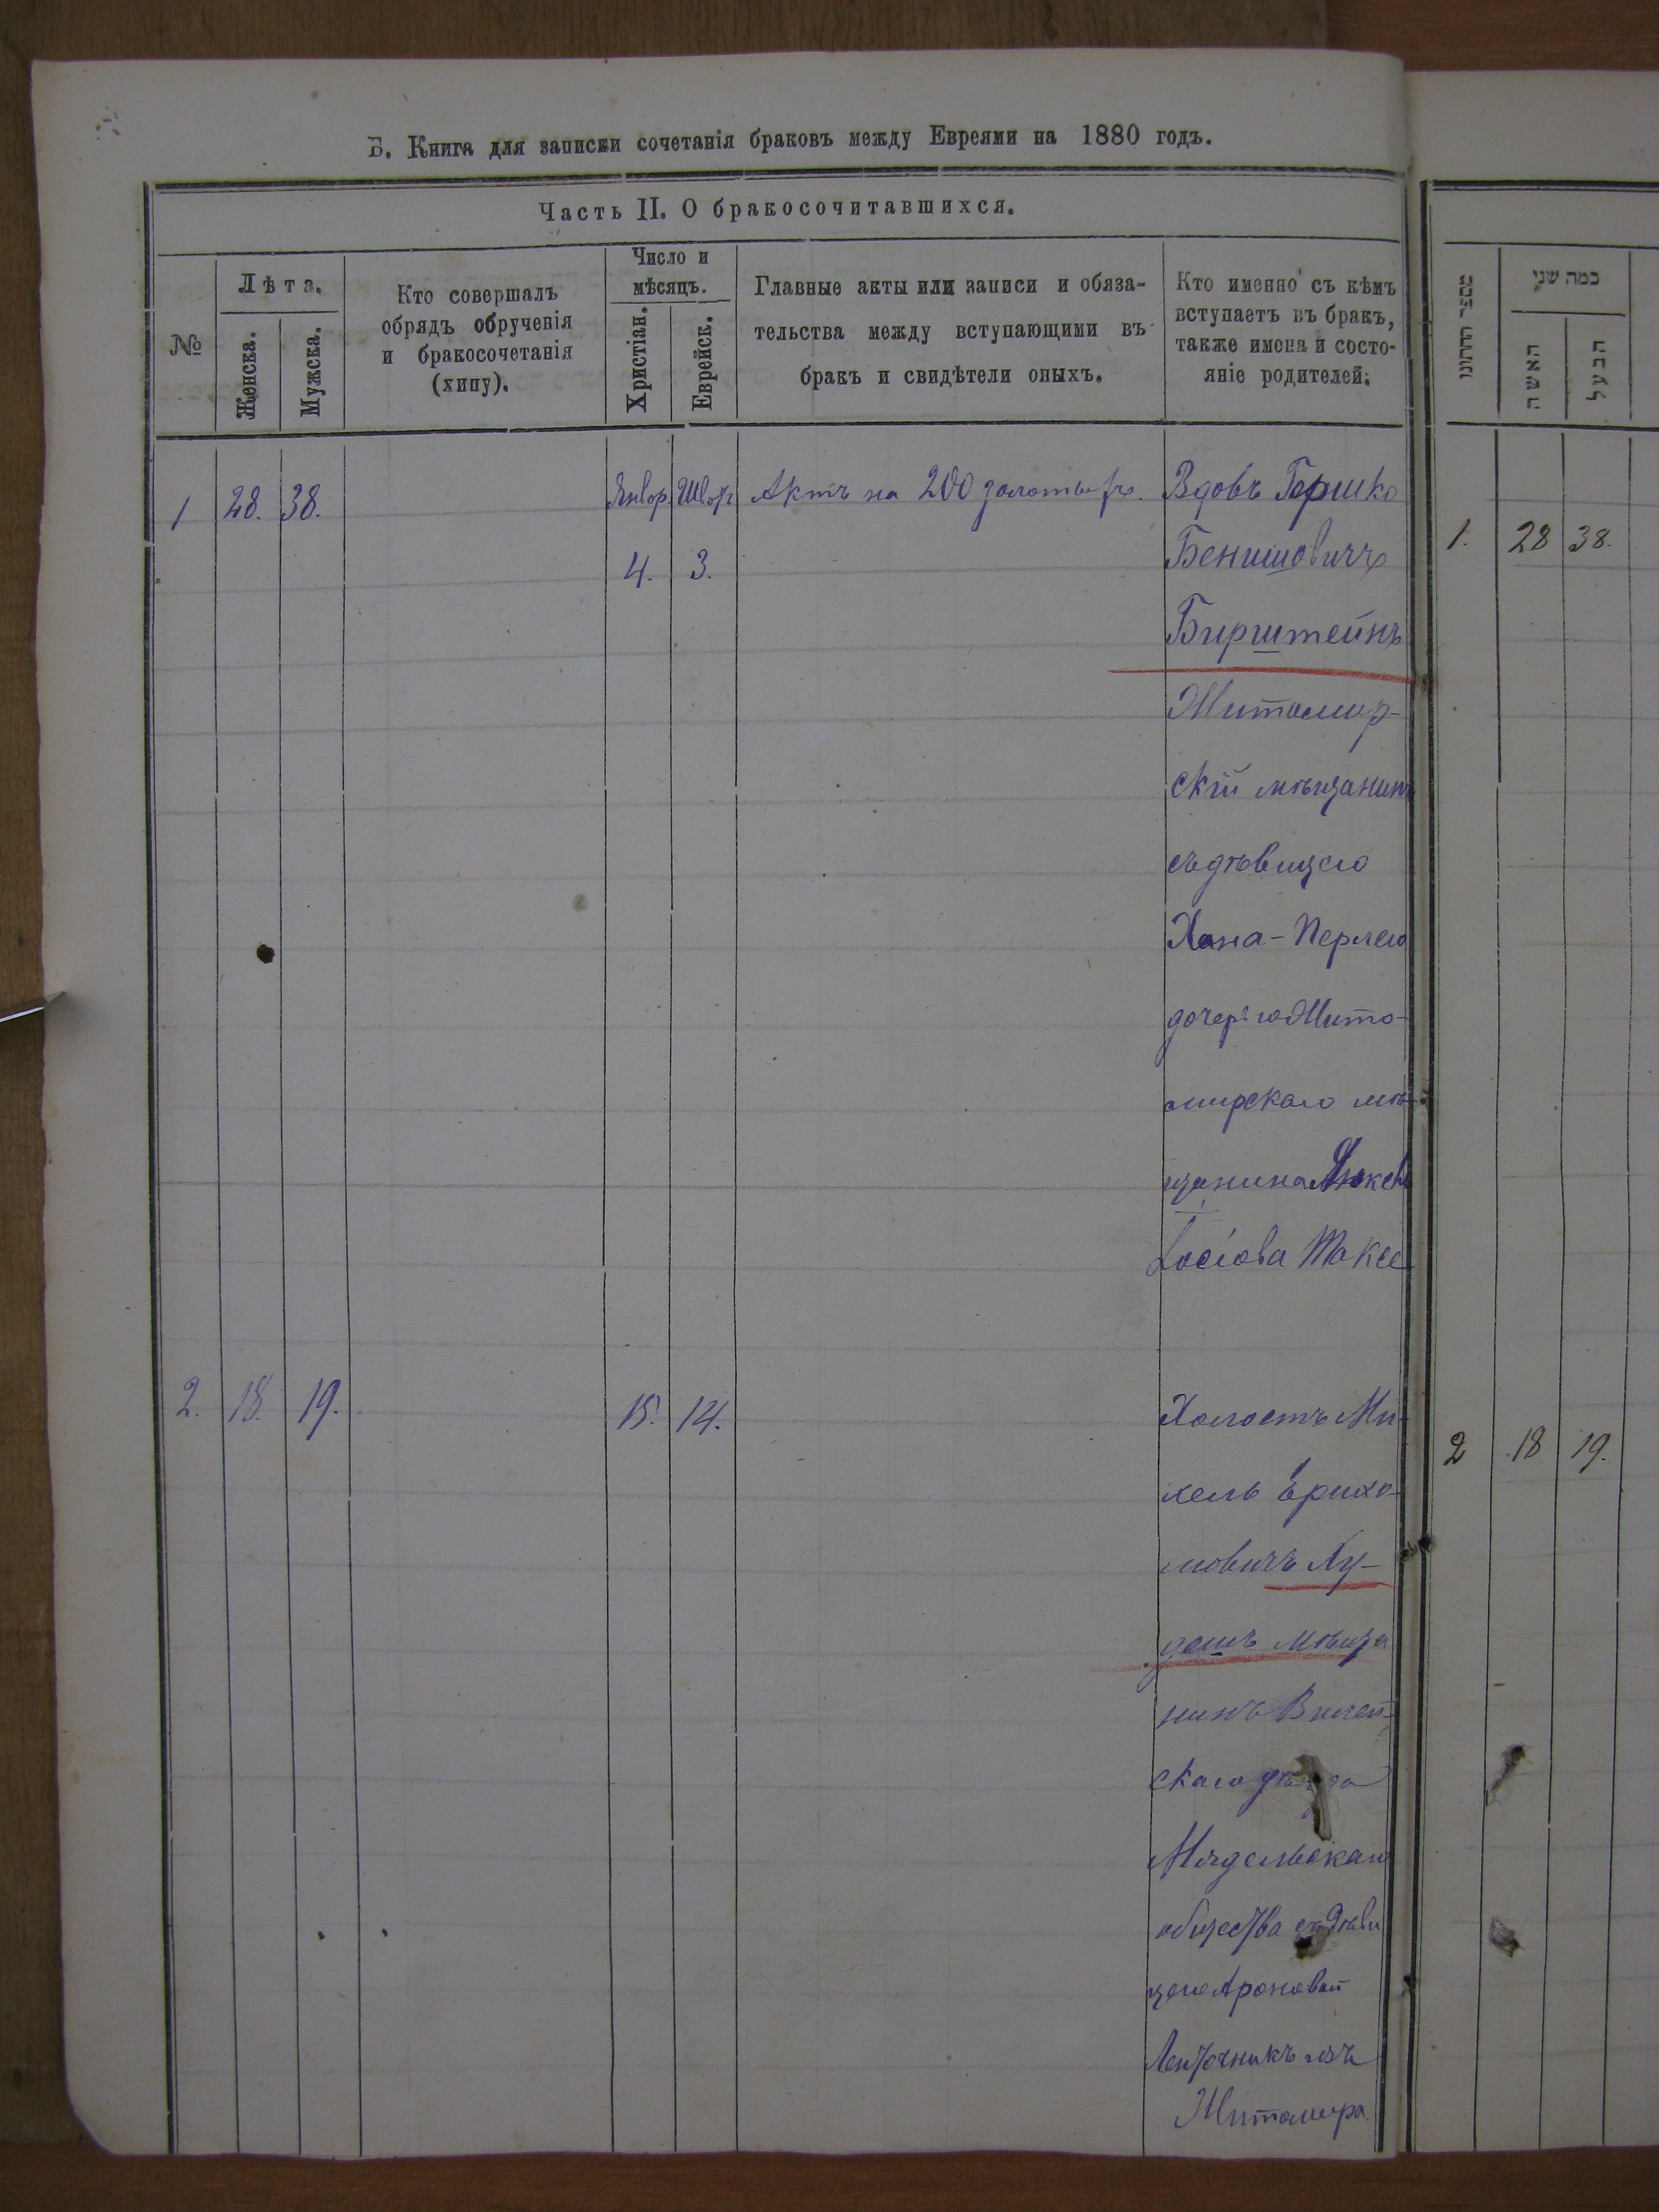 Б. Книга для записки сочетанія браковъ между Евреями на 1880 годъ.
Часть II. О бракосочитавшихся.
№
Лѣта.
Женска.
Мужска.
Кто совершалъ
обрядъ обрученія
и бракосочетанія
(хипу).
Число и
мѣсяцъ.
Христіан.
Еврейск.
Главные акты или записи и обяза-
тельства между вступающими въ
бракъ и свидѣтели оныхъ.
Кто именно съ кѣмъ
вступаетъ въ бракъ,
также имена и состо-
яніе родителей.
מספר החתונו
כמה שני
האשה
הבעל
1 28. 38. Январ. Шват Актъ на 200 золотыхъ. Вдовъ Гершко
4. 3. Бенишовичъ
Бирштейнъ
Житомир-
скій мѣщанинъ
съ дѣвицею
Хана-Перлею
дочерью Жито-
мирскаго мѣ-
щанина
Іосіова Макее
1. 28 38.
2. 18. 19. 15. 14. Холостъ Ми-
хель Ерихо-
мовичъ Ху-
дешъ мѣща
нинъ Вилей-
скаго уѣзда
Мядельскаго
общества съ дѣви
цею Ароновой
Ленточникъ изъ
Житомира.
2 18 19.